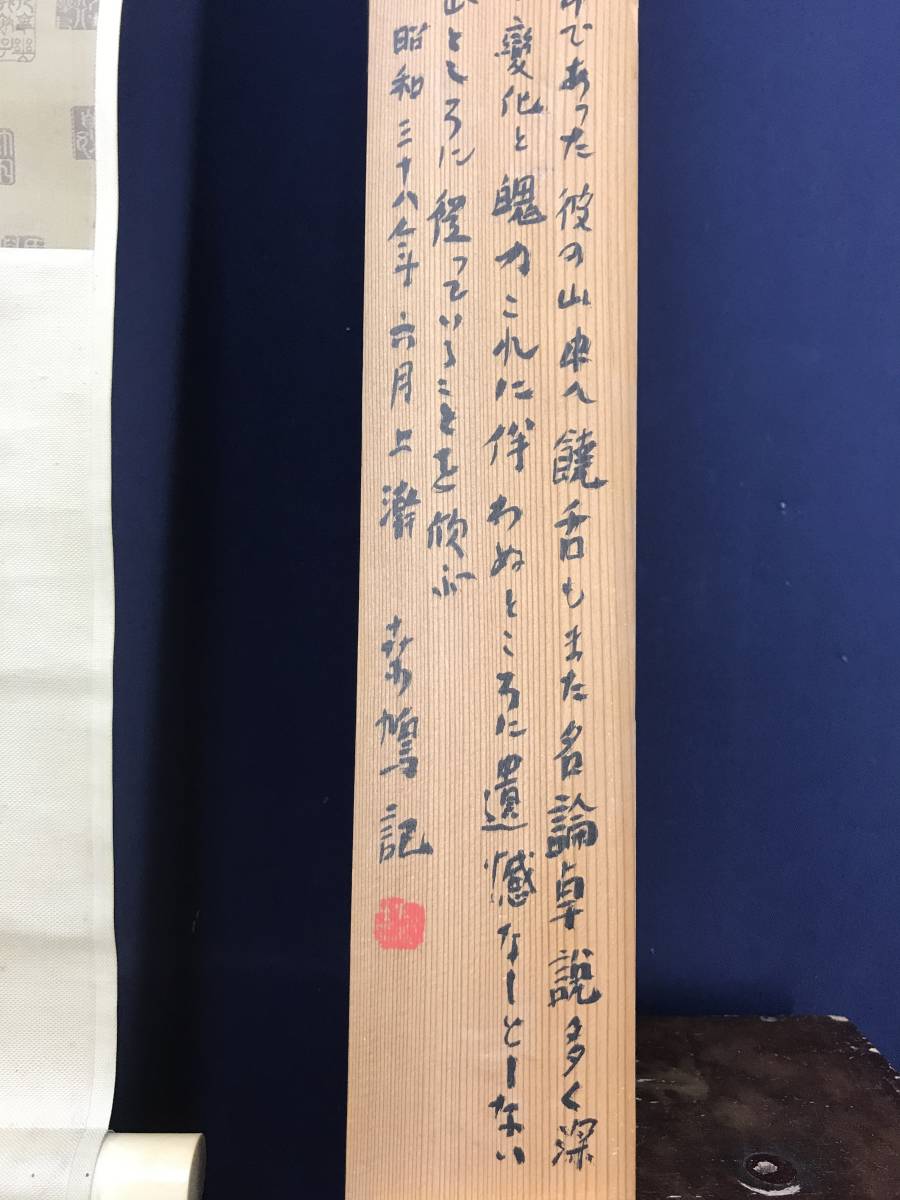 であった彼の山中へ饒舌もまた名論卓説多く深
変化と魄力これに伴わぬところに遺憾なしとしない
ところに従っていることを欣ぶ
昭和三十八年六月上澣 桑鳩記